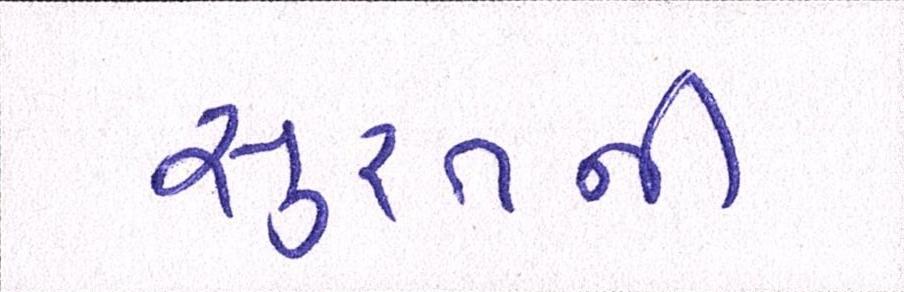 સુરતની